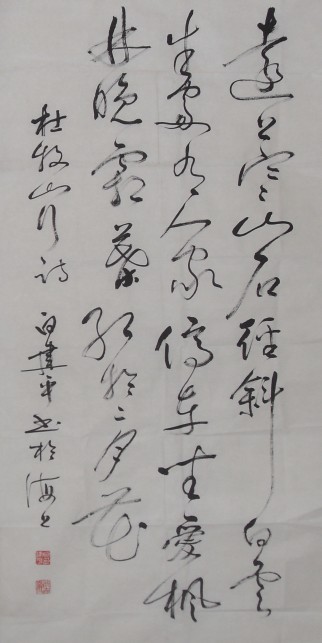 遠上寒山石徑斜白雲
生處有人家停车坐愛楓
林晚霜葉紅於二月花
杜牧山行詩 白建平书於海上